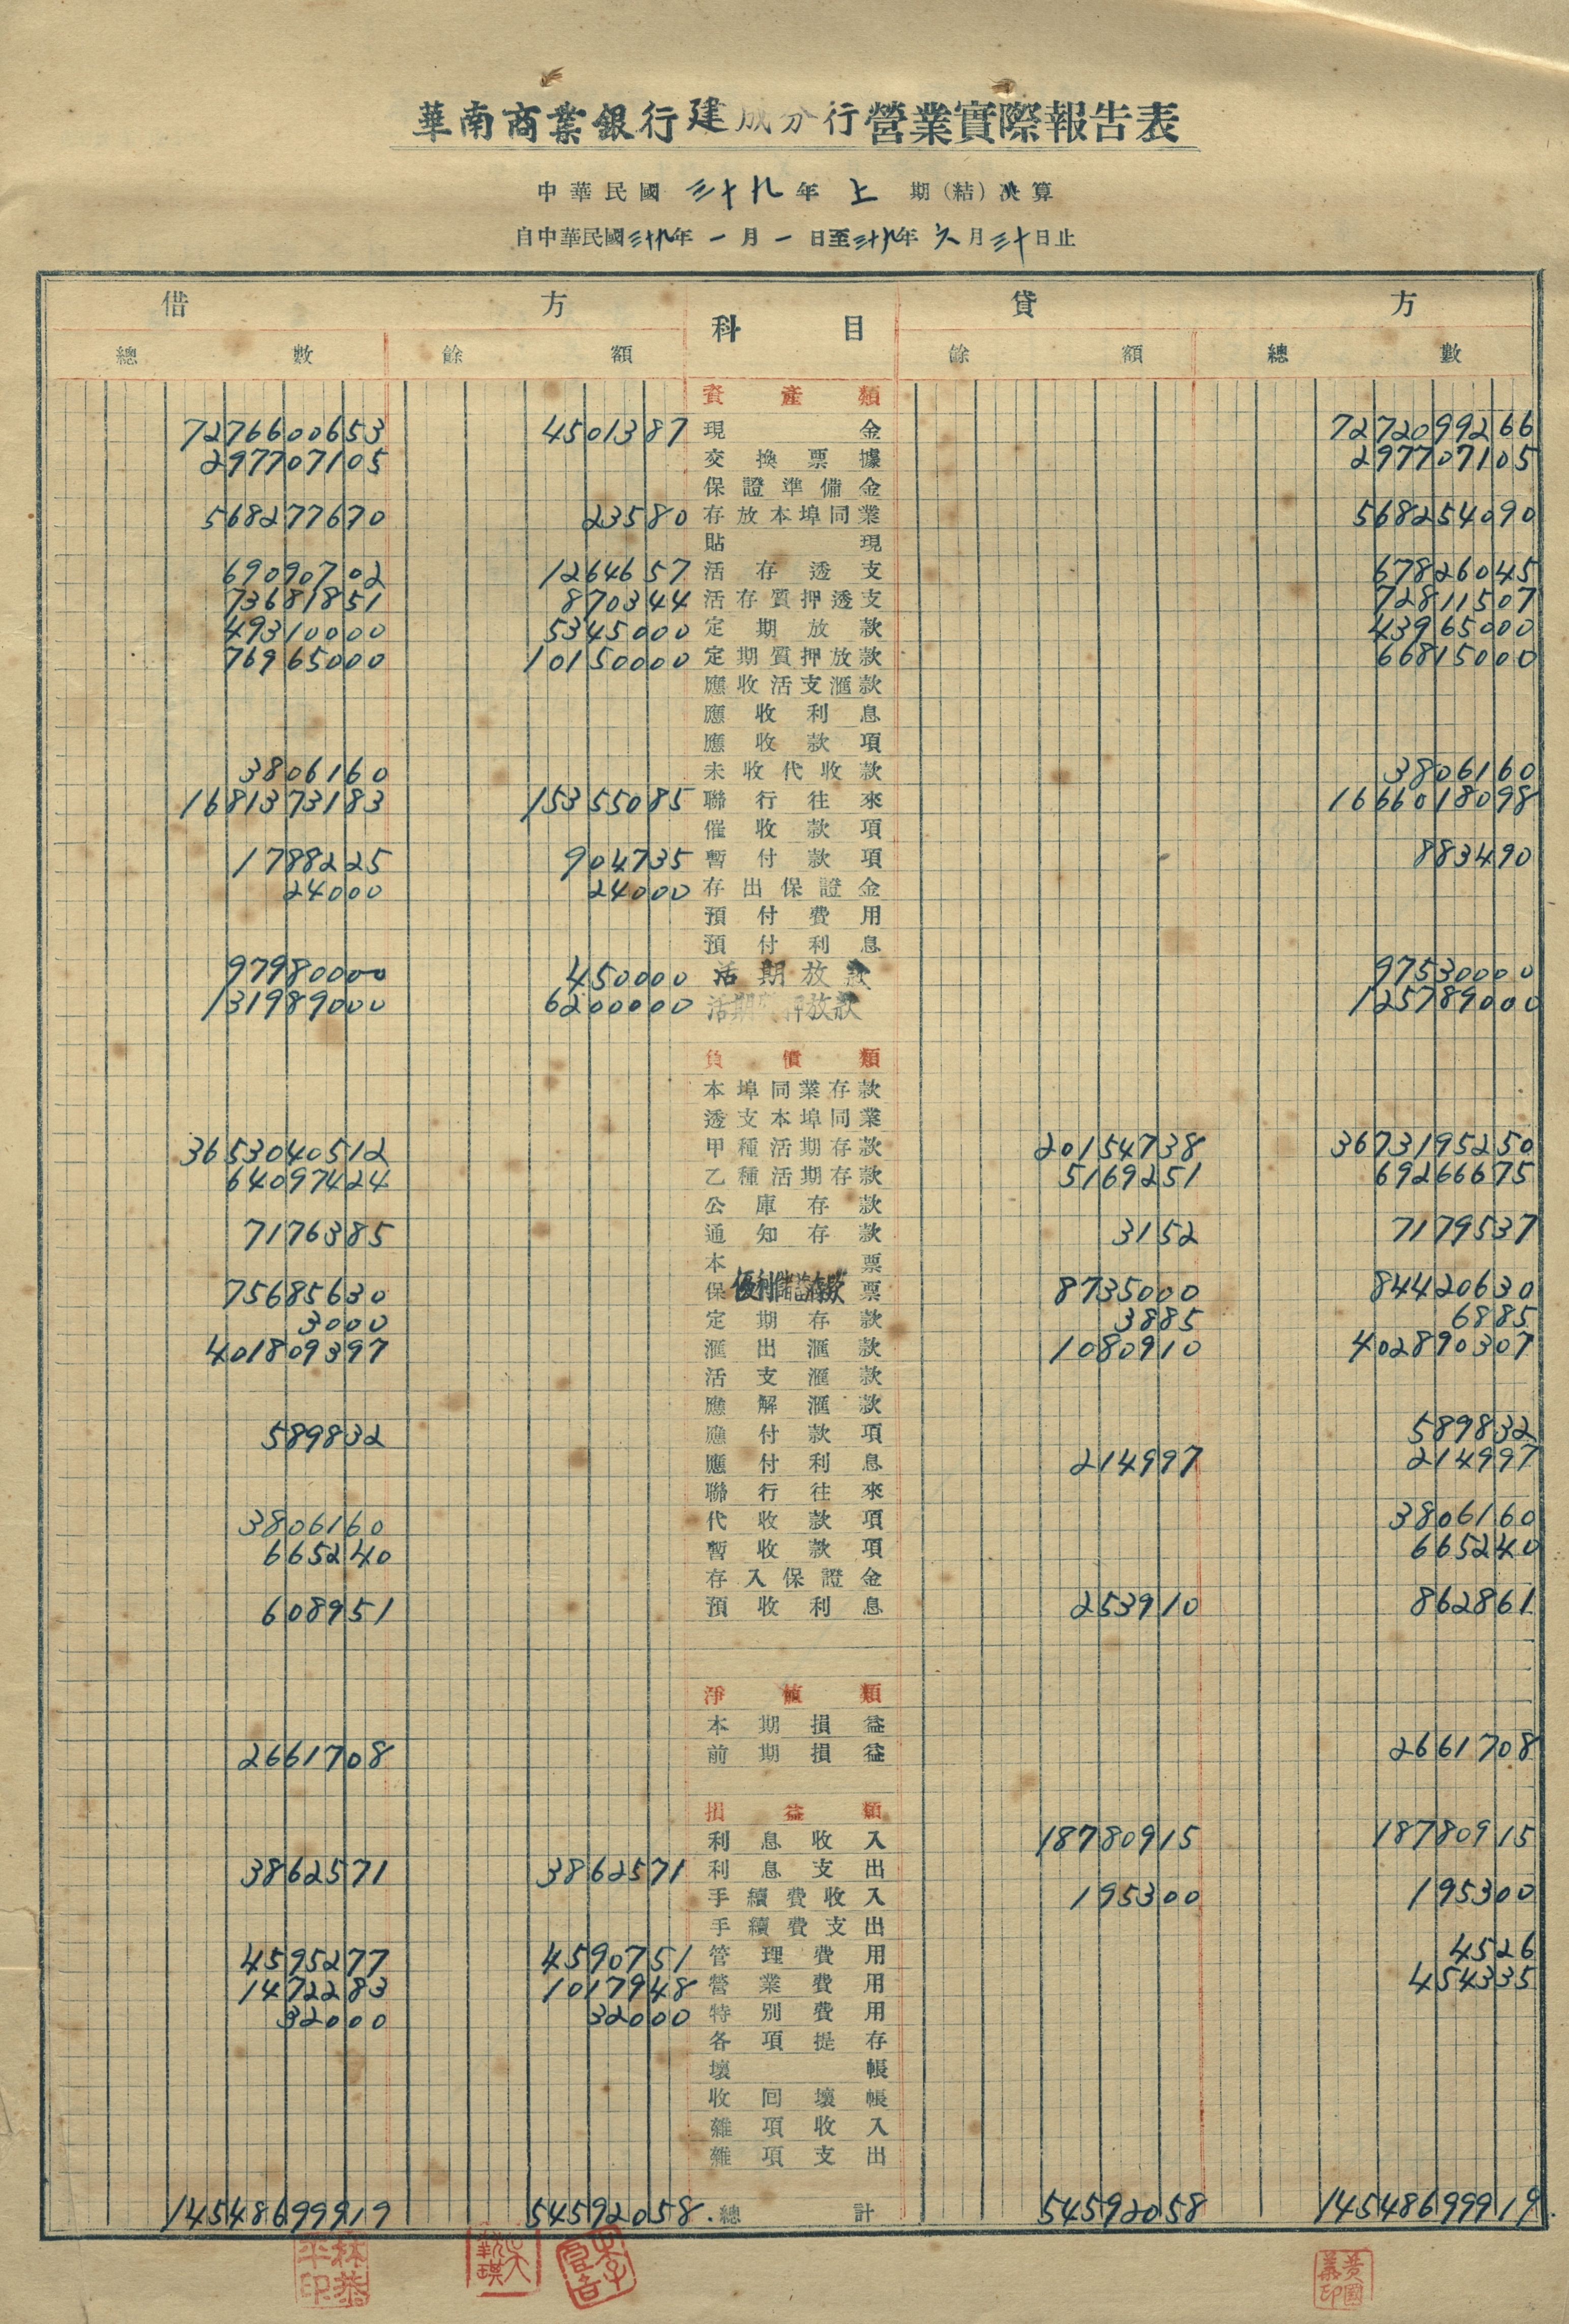 華南商業銀行建成分行營業實際報告表
中華民國三十九年上期(結)決算
自中華民國三十九年一月一日至三十九年六月三十日止
借方 科目 貸方
總數 餘額 餘額 總數
資產類
7276600653 4501387 現金 7272099266
297707105 交換票據 297707105
保證準備金
568277670 23580 存放本埠同業 568254090
貼現
69090702 1264657 活存透支 67826045
73681851 870344 活存質押透支 72811507
49310000 5345000 定期放款 43965000
76965000 10150000 定期質押放款 66815000
應收活支滙款
應收利息
應收款項
3806160 未收代收款 3806160
1681373183 15355085 聯行往來 1666018098
催收款項
1788225 904735 暫付款項 883490
24000 24000 存出保證金
預付費用
預付利息
97980000 450000 活期放款 97530000
131989000 6200000 活期質押放款 125789000
負債類
本埠同業存款
透支本埠同業
3653040512 甲種活期存款 20154738 3673195250
64097424 乙種活期存款 5169251 69266675
公庫存款
7176385 通知存款 3152 7179537
本票
75685630 保優利儲蓄存款票 8735000 84420630
3000 定期存款 3885 6885
401809397 滙出滙款 1080910 402890307
活支滙款
應解滙款
589832 應付款項 589832
應付利息 214997 214997
聯行往來
3806160 代收款項 3806160
665240 暫收款項 665240
存入保證金
608951 預收利息 253910 862861
淨值類
本期損益
2661708 前期損益 2661708
損益類
利息收入 18780915 18780915
3862571 3862571 利息支出
手續費收入 195300 195300
手續費支出
4595277 4590751 管理費用 4526
1472283 1017948 營業費用 454335
32000 32000 特別費用
各項提存
壞帳
收回壞帳
雜項收入
雜項支出
14548699919 54592058 總計 54592058 14548699919
林恭平印
黃國義印